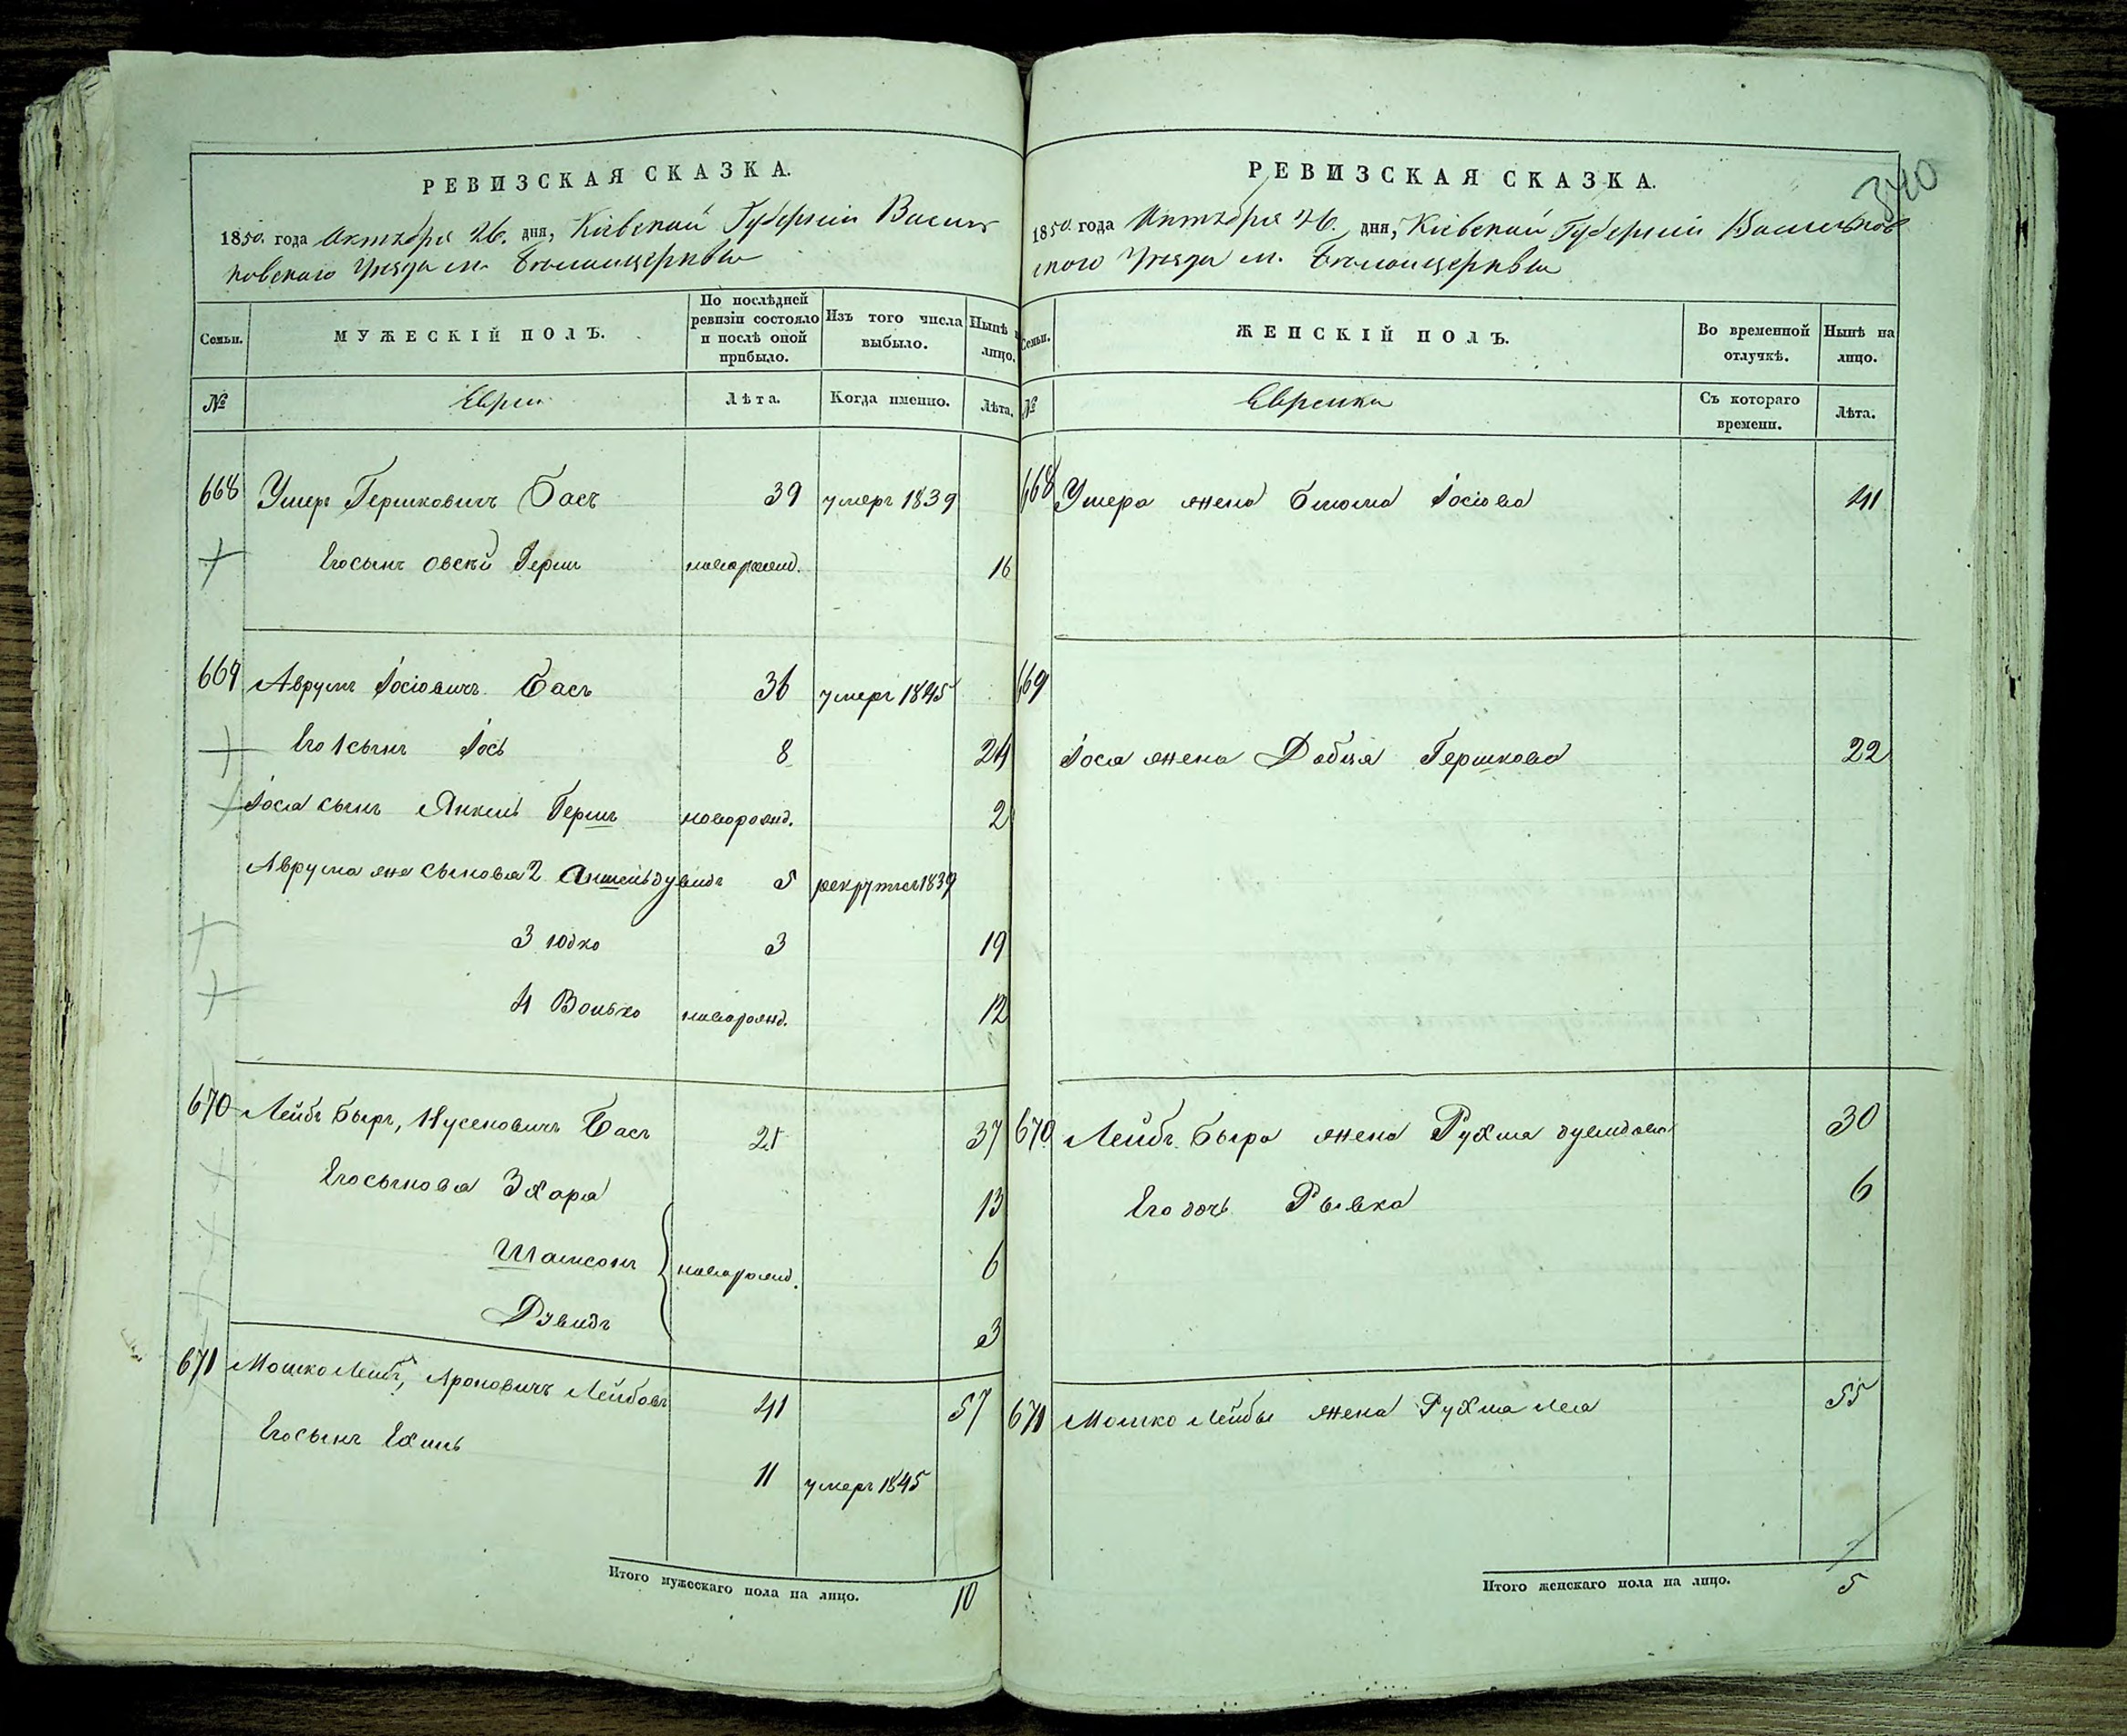 РЕВИЗСКАЯ СКАЗКА.
1850 года Октября 26. дня, Кіевской Губерніи Василь
ковскаго Уезда м. Белоицерквы
Семьи.
МУЖЕСКІЙ ПОЛЪ.
По послѣдней
ревизіи состояло
и послѣ оной
прибыло.
Изъ того числа
выбыло.
Нынѣ
лицо.
№
Евреи
Лѣта.
Когда именно.
Лѣта.
668 Умеръ Гершковичъ Басъ 39 умеръ 1839
Его сынъ Овсей Герш новорожд. 16
669 Аврумъ Іосіовичъ Басъ 36 умеръ 1845
Его 1 сынъ Іось 8 24
Іося сынъ Янкель Гершъ новорожд. 2
Аврума же сыновья 2 Аншель Дувидъ 5 рекрутъ 1839
3 Юдко 3 19
4 Волько новорожд. 12
670 Лейбъ Быръ, Нусеновичъ Басъ 21 37
Его сыновья Зхаря 13
Шамсонъ новорожд. 6
Дувидъ 3
671 Мошко Лейбъ, Ароновичъ 41 57
Его сынъ Ехиль 11 умеръ 1845
Итого мужескаго пола на лицо. 10
340
РЕВИЗСКАЯ СКАЗКА.
1850 года Октября 26. дня, Кіевской Губерніи Васильков
ского Уезда м. Белоицерквы
Семьи.
ЖЕНСКІЙ ПОЛЪ.
Во временной
отлучкѣ.
Нынѣ на
лицо.
№
Еврейки
Съ котораго
времени.
Лѣта.
668 Умера жена Блюма Іосіова 41
669
Іося жена Добця Гершкова 22
670 Лейбъ Быра жена Рухля Дувидова 30
Его дочь Рывка 6
671 Мошко Лейбы жена Рухля Лея 55
Итого женскаго пола на лицо. 5